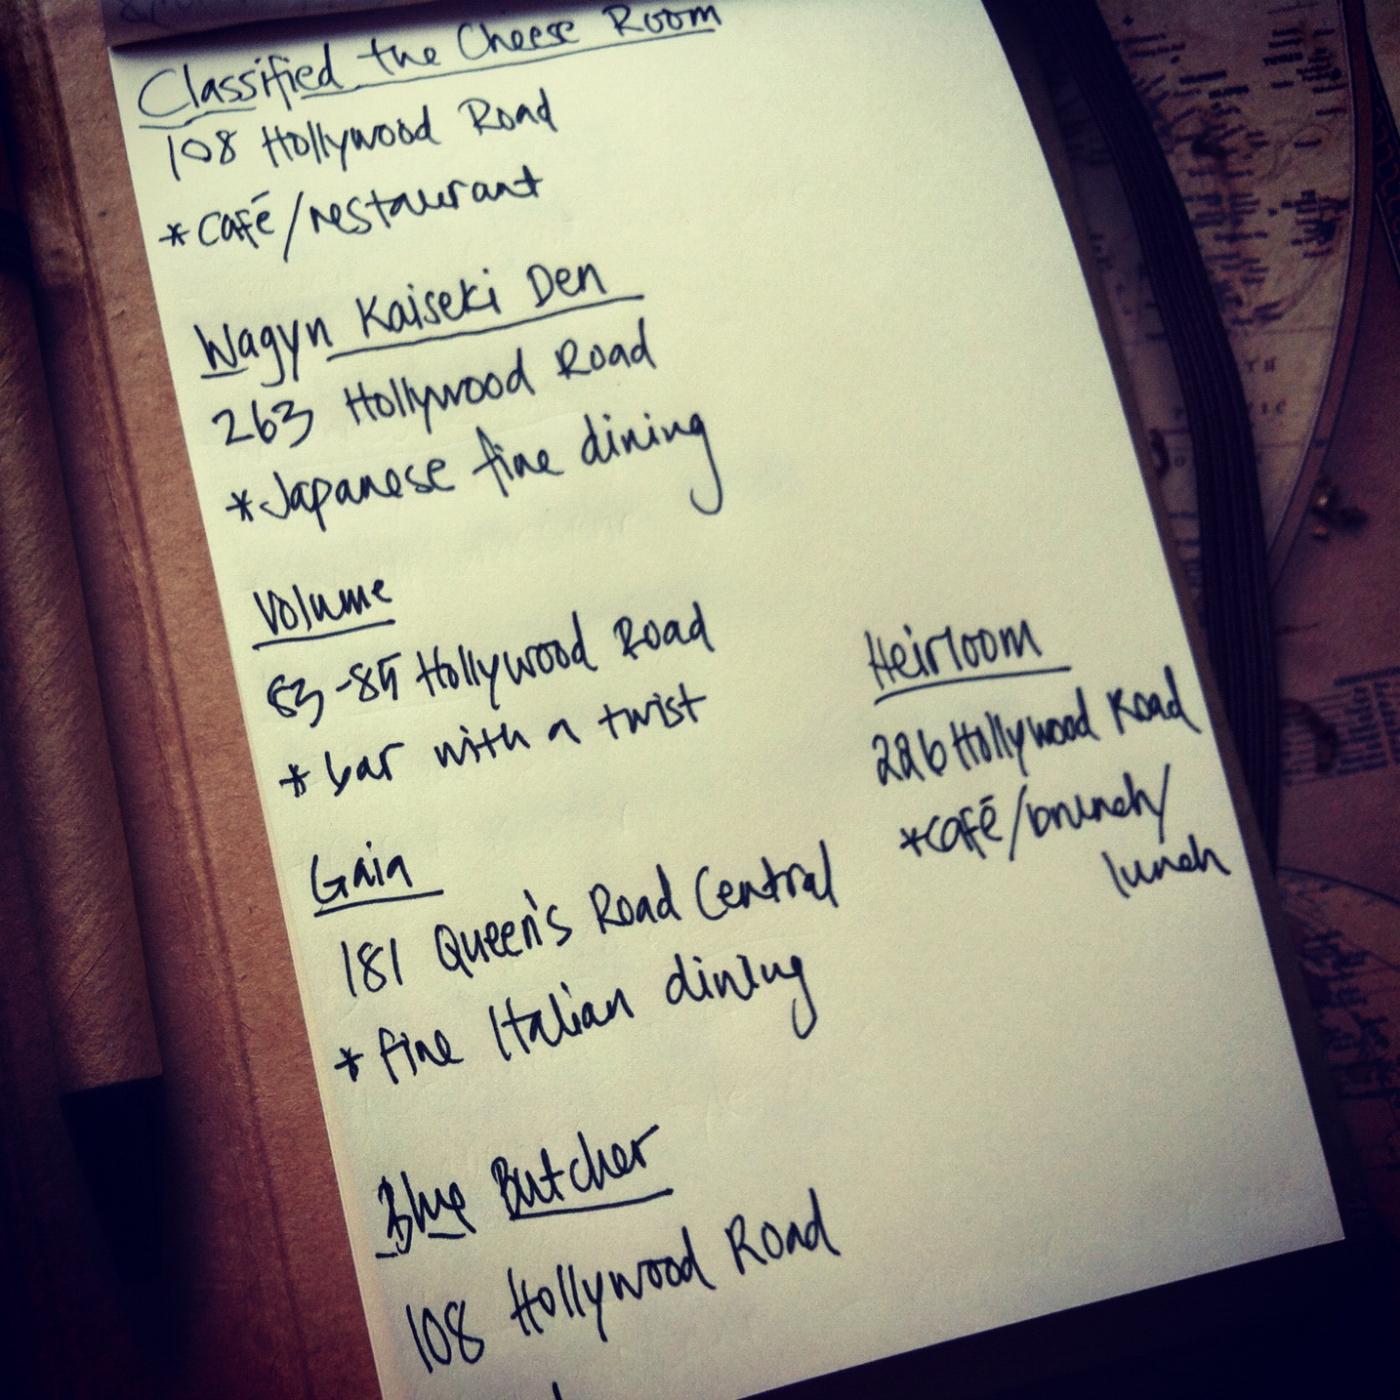 Classified the Cheese Room
108 Hollywood Road
*Café/restaurant
Wagyu Kaiseki Den
263 Hollywood Road
*Japanese fine dining
Volume
83-85 Hollywood Road
*bar with a twist
Gaia
181 Queen's Road Central
*fine Italian dining
Blue Butcher
108 Hollywood Road
Heirloom
226 Hollywood Road
*café/brunch/
lunch